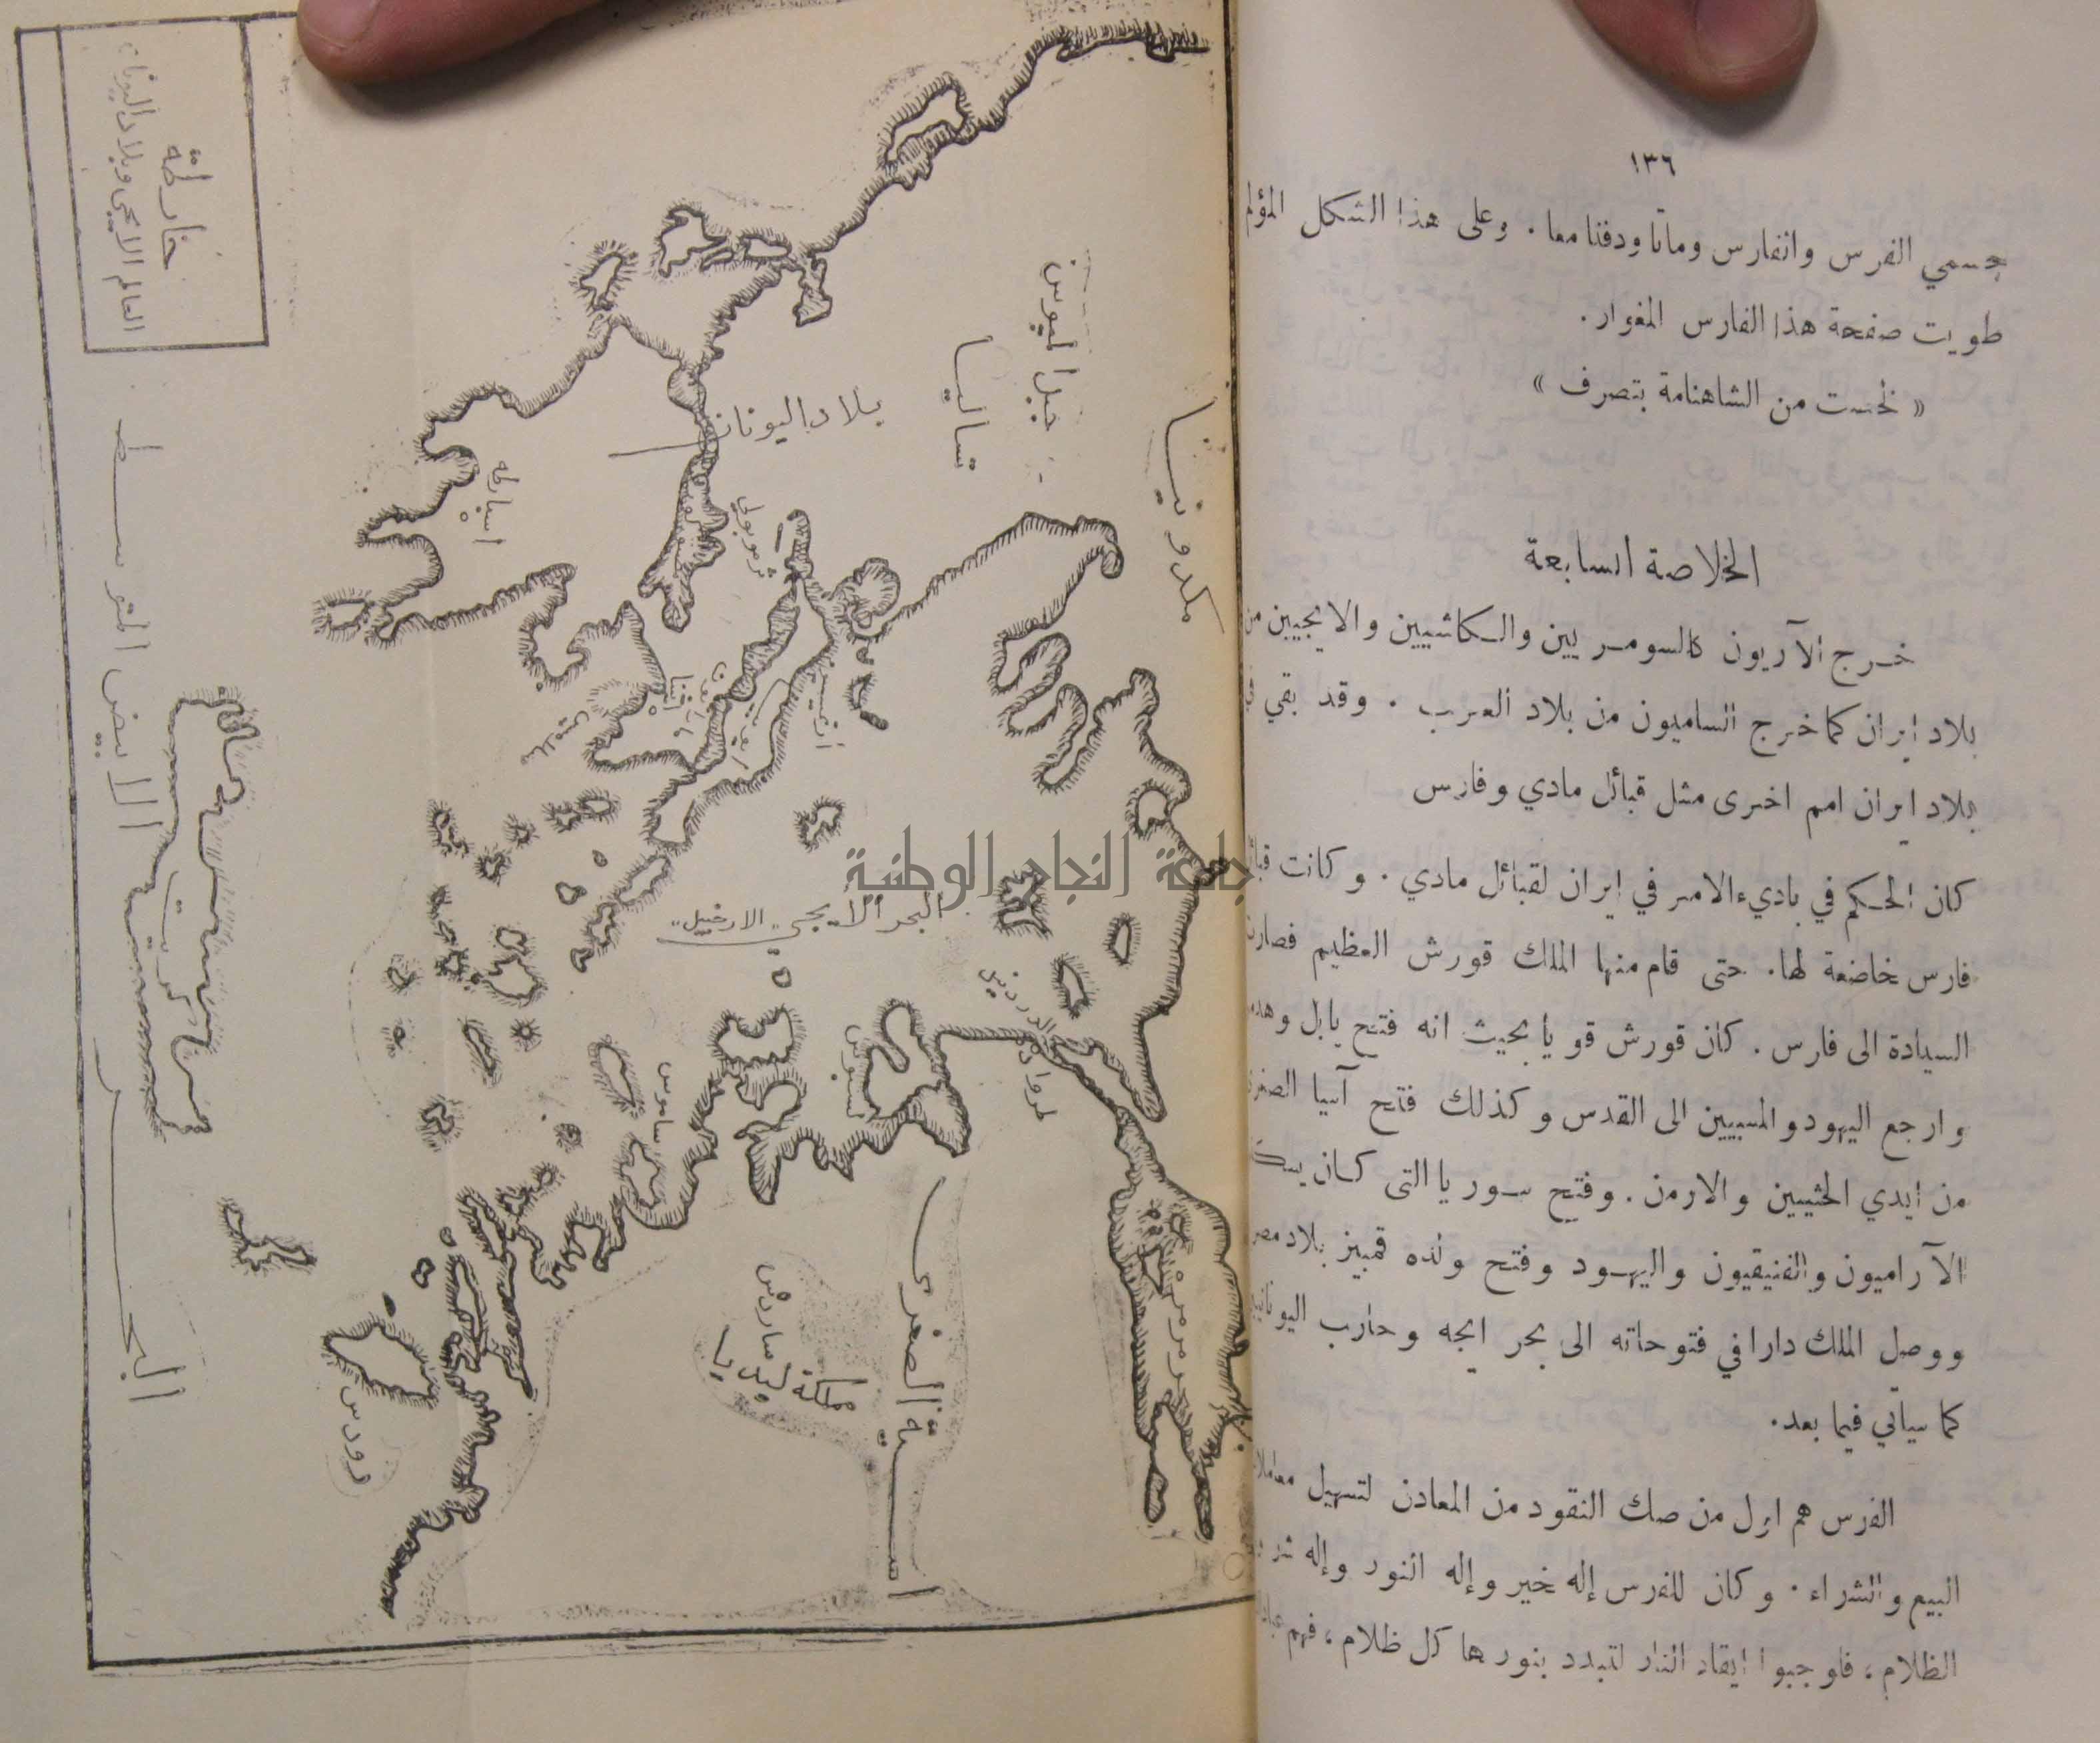 ١٣٦
جسمي الفرس والفارس وماتا ودفنا معا. وعلى هذا الشكل المؤلم
طويت صفحة هذا الفارس المغوار.
« لخصت من الشاهنامة بتصرف »
الخلاصة السابعة
خرج الآريون كالسومريين والكاشيين والايجيين من
بلاد ايران كما خرج الساميون من بلاد العرب. وقد بقي في
بلاد ايران امم اخرى مثل قبائل مادي وفارس
كان الحكم في باديء الامر في ايران لقبائل مادي. وكانت
فارس خاضعة لها. حتى قام منها الملك قورش العظيم فصارت
السيادة الى فارس. كان قورش قويا بحيث انه فتح بابل وهدم
وارجع اليهود والمسبيين الى القدس وكذلك فتح آسيا الصغرى
من ايدي الحثيين والارمن. وفتح سوريا التى كان
الآراميون والفنيقيون واليهود وفتح ولده قمبيز بلاد مصر
ووصل الملك دارا في فتوحاته الى بحر ايجه وحارب
كما سيأتي فيما بعد.
الفرس هم اول من صك النقود من المعادن لتسهيل
البيع والشراء. وكان للفرس إله خير وإله النور وإله شر
الظلام، فاوجبوا ايقاد النار لتبدد بنورها كل ظلام، فهم
خارطة
العالم الايجي وبلاد اليونان
البحر الابيض المتوسط
جبل المبوس
تساليا
مكدونيا
بلاد اليونان
اسبارطه
ثرموبولي
اثينا
ماراثون
البحر الأيجي "الارخبيل"
الدردنيل
طرواده
لسبوس
ساموس
بحر مرمره
آسية الصغرى
ساردس
مملكة ليديا
رودس
كريت
جامعة النجاح الوطنية